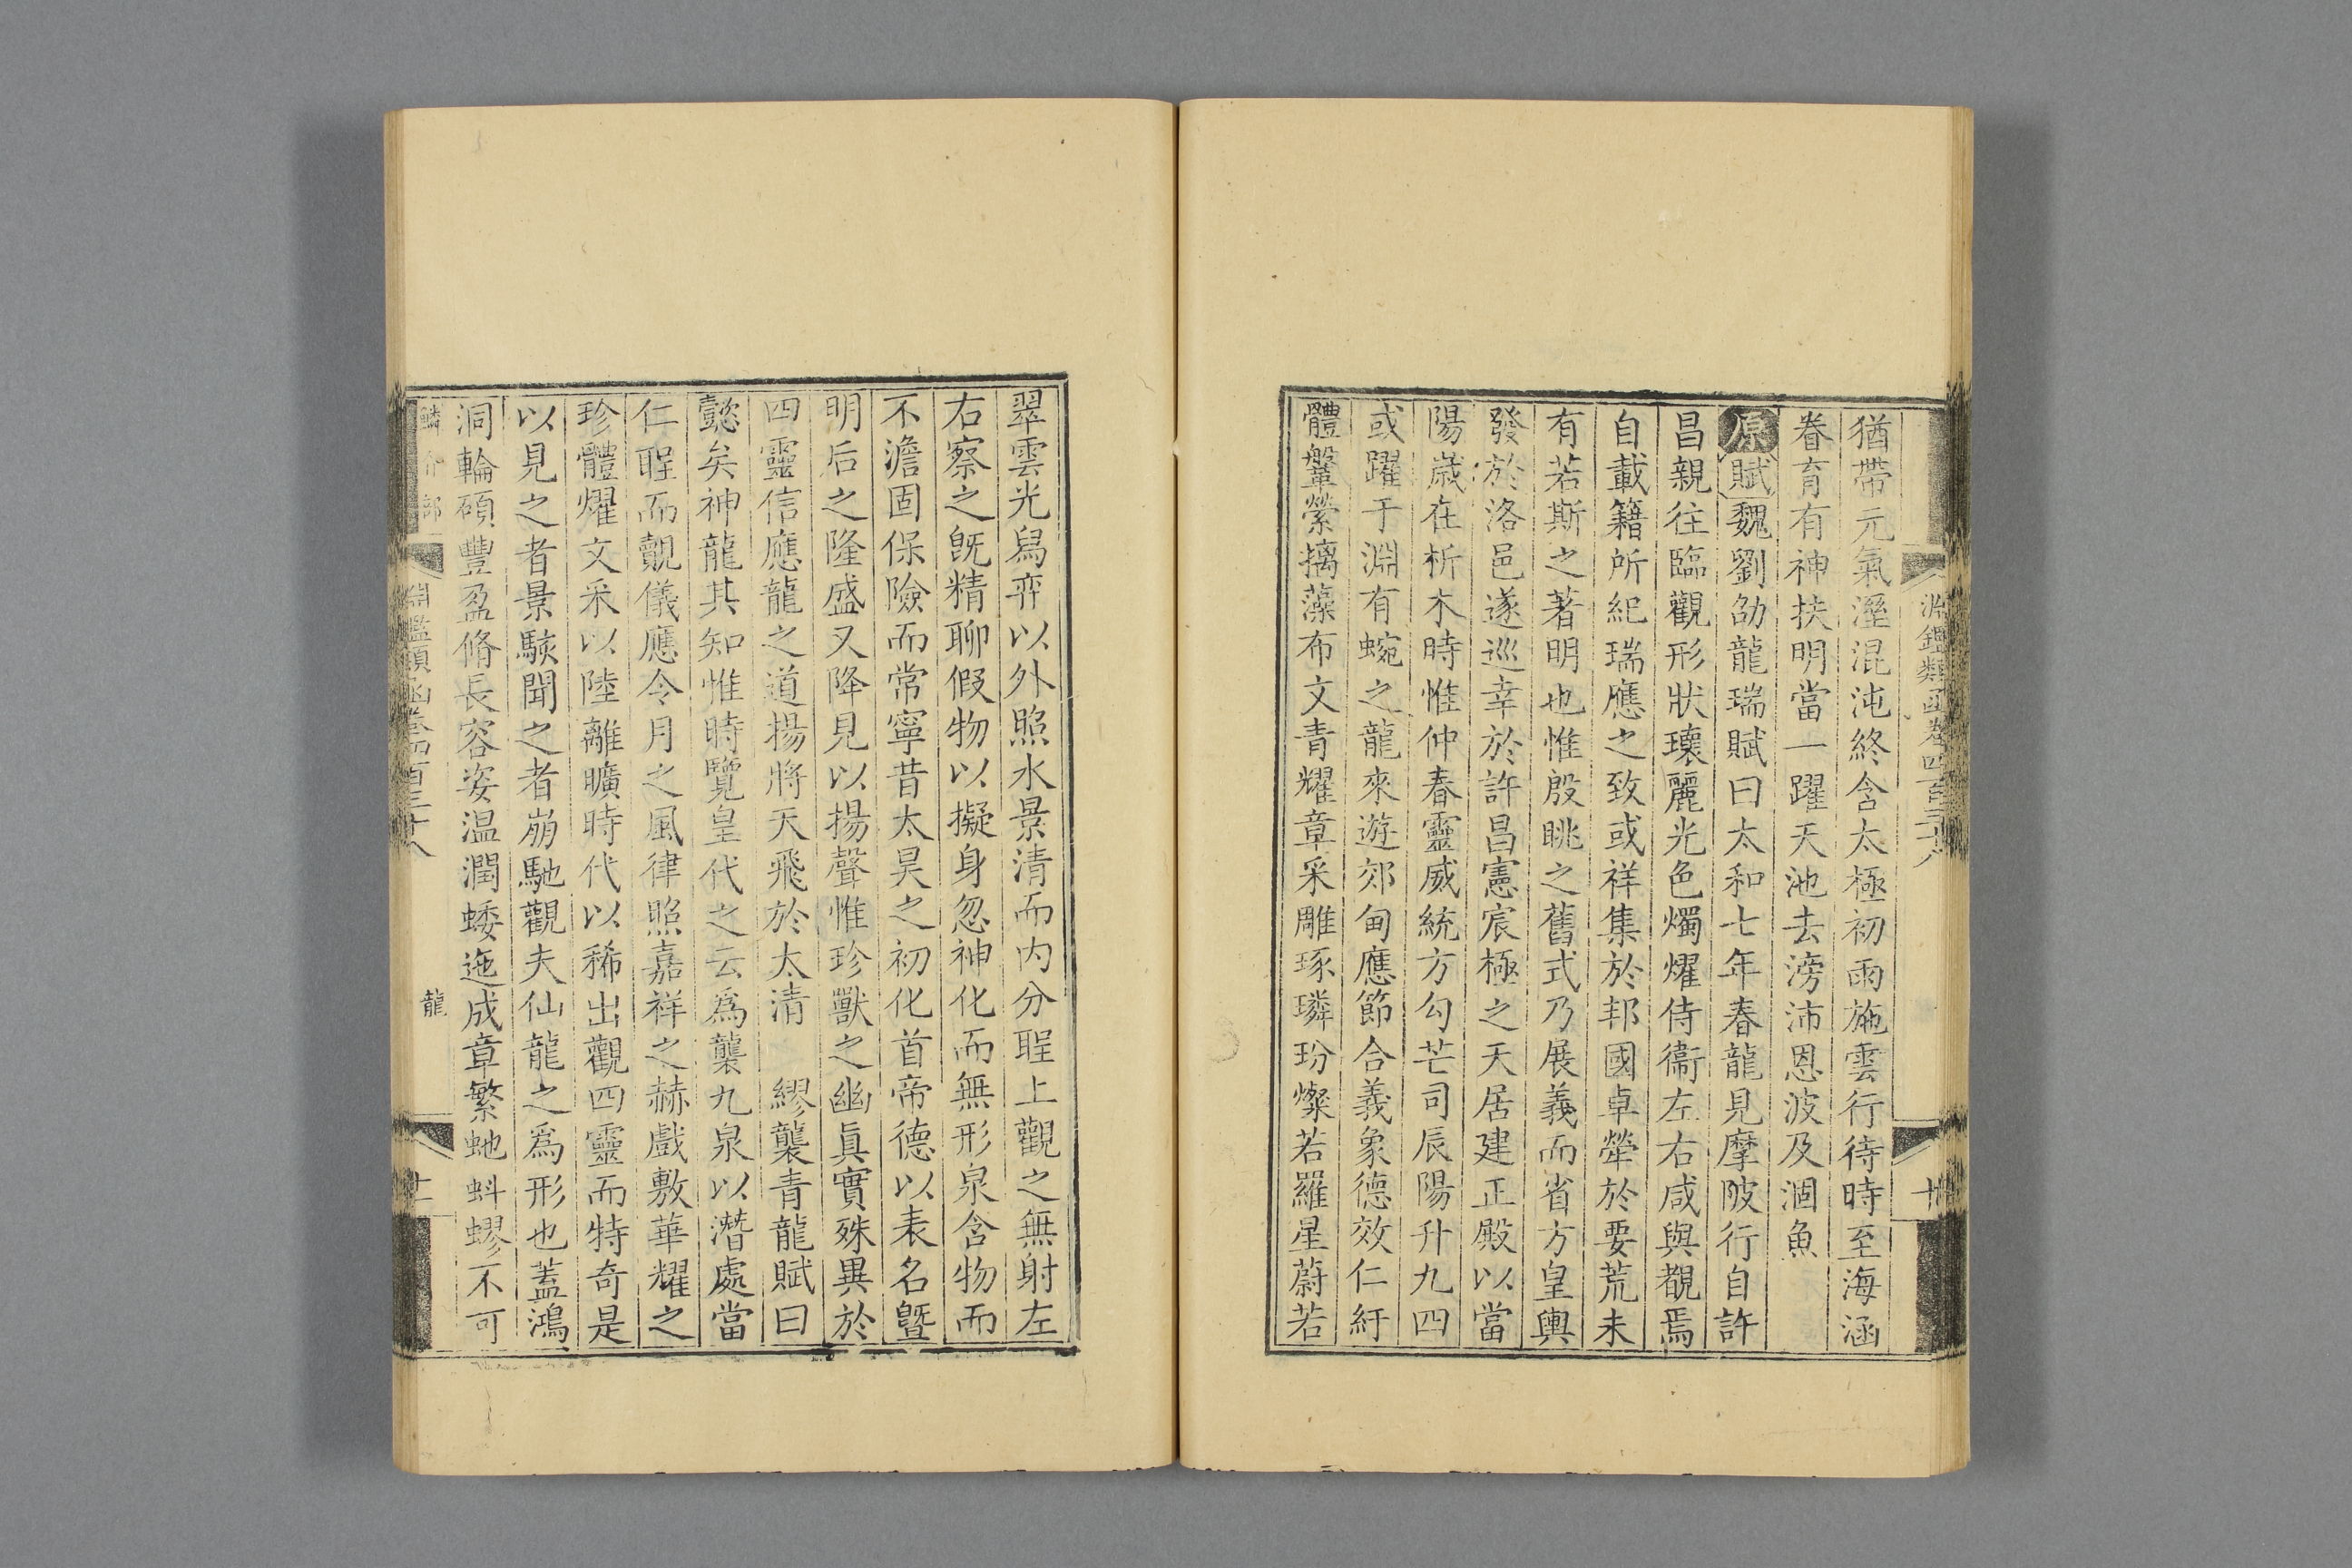 淵鑑類函卷四百三十八
十
猶帶元氣溼混沌終含太極初雨施雲行待時至海涵
眷育有神扶明當一躍天池去滂沛恩波及涸魚
原賦魏劉劭龍瑞賦曰太和七年春龍見摩陂行自許
昌親往臨觀形狀瓌麗光色燭燿侍衞左右咸與覩焉
自載籍所紀瑞應之致或祥集於邦國卓犖於要荒未
有若斯之著明也惟殷眺之舊式乃展義而省方皇輿
發於洛邑遂巡幸於許昌憲宸極之天居建正殿以當
陽歲在析木時惟仲春靈威統方勾芒司辰陽升九四
或躍于淵有蜿之龍來遊郊甸應節合義象德效仁紆
體鞶縈摛藻布文青耀章采雕琢璘玢燦若羅星蔚若
翠雲光舄弈以外照水景清而内分聖上觀之無射左
右察之旣精聊假物以擬身忽神化而無形泉含物而
不澹固保險而常寧昔太昊之初化首帝德以表名曁
明后之隆盛又降見以揚聲惟珍獸之幽眞實殊異於
四靈信應龍之道揚將天飛於太清 繆襲青龍賦曰
懿矣神龍其知惟時覽皇代之云爲襲九泉以潛處當
仁聖而覿儀應令月之風律照嘉祥之赫戲敷華耀之
珍體燿文采以陸離曠時代以稀出觀四靈而特奇是
以見之者景駭聞之者崩馳觀夫仙龍之爲形也蓋鴻
洞輪碩豐盈脩長容姿温潤蜲迤成章繁虵蚪蟉不可
鱗介部
淵鑑類函卷四百三十八
龍
十一